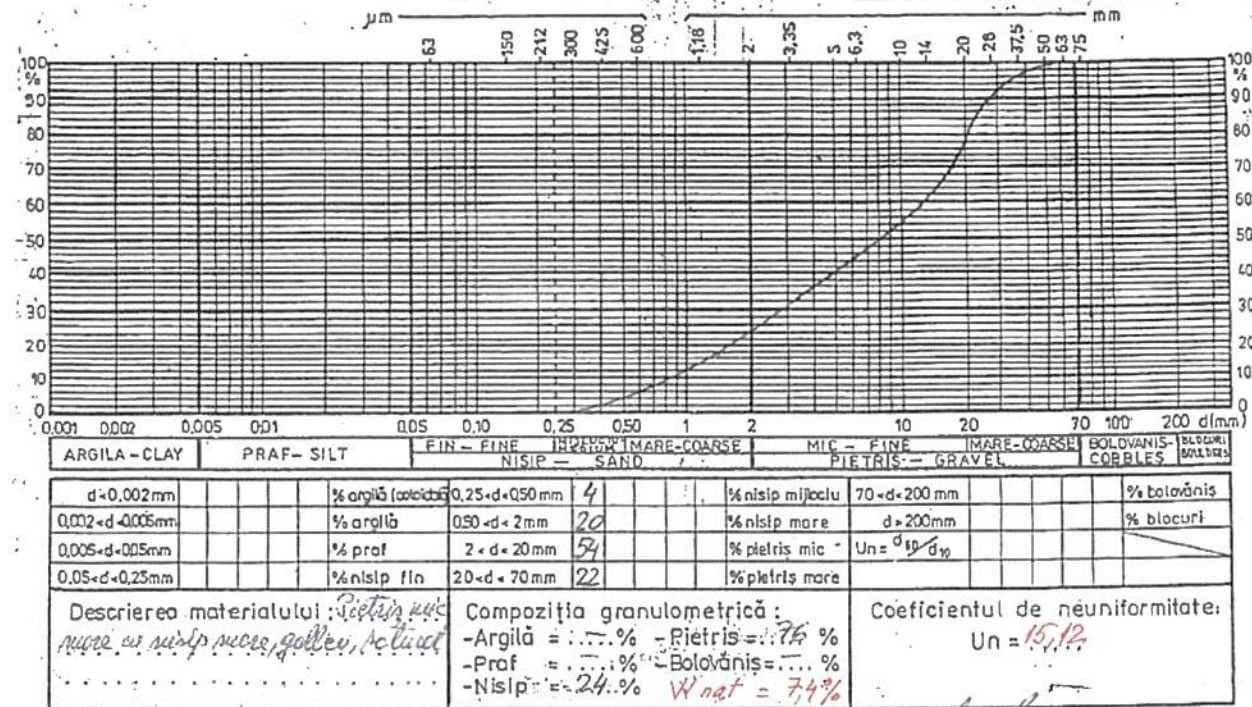 μm mm
63 150 212 300 425 600 1,18 2 3,35 5 6,3 10 14 20 28 37,5 50 63 75
100 100
% %
90 90
80 80
70 70
60 60
50 50
40 40
30 30
20 20
10 10
0 0
0,001 0,002 0,005 0,01 0,05 0,10 0,25 0,50 1 2 10 20 70 100 200 d(mm)
ARGILA - CLAY PRAF - SILT FIN - FINE MARE-COARSE MIC - FINE MARE-COARSE BOLOVANIS- BLOCURI
NISIP - SAND PIETRIS - GRAVEL COBBLES BOULDERS
d<0,002mm % argilă (coloidală) 0,25<d<0,50 mm 4 % nisip mijlociu 70<d<200 mm % bolovăniș
0,002<d<0,005mm % argilă 0,50<d<2mm 20 % nisip mare d>200mm % blocuri
0,005<d<0,05mm % praf 2<d<20mm 54 % pietriș mic Un= d60/d10
0,05<d<0,25mm % nisip fin 20<d<70mm 22 % pietriș mare
Descrierea materialului: Pietriș mic
mare cu nisip mare,
Compoziția granulometrică:
-Argilă = -% -Pietriș = 76 %
-Praf = % -Bolovăniș = %
-Nisip = 24 % W nat = 7,4%
Coeficientul de neuniformitate:
Un = 15,12